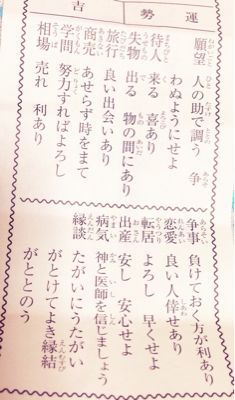 運勢 吉
願望 人の助で調う 争
わぬようにせよ
待人 来る 喜あり
失物 出る 物の間にあり
旅行 良い出会いあり
商売 あせらす時をまて
学問 努力すればよろし
相場 売れ 利あり
争事 負けておく方が利あり
恋愛 良い人倖せあり
転居 よろし 早くせよ
出産 安し 安心せよ
病気 神と医師を信じましょう
縁談 たがいにうたがい
がとけてよき縁結
がととのう